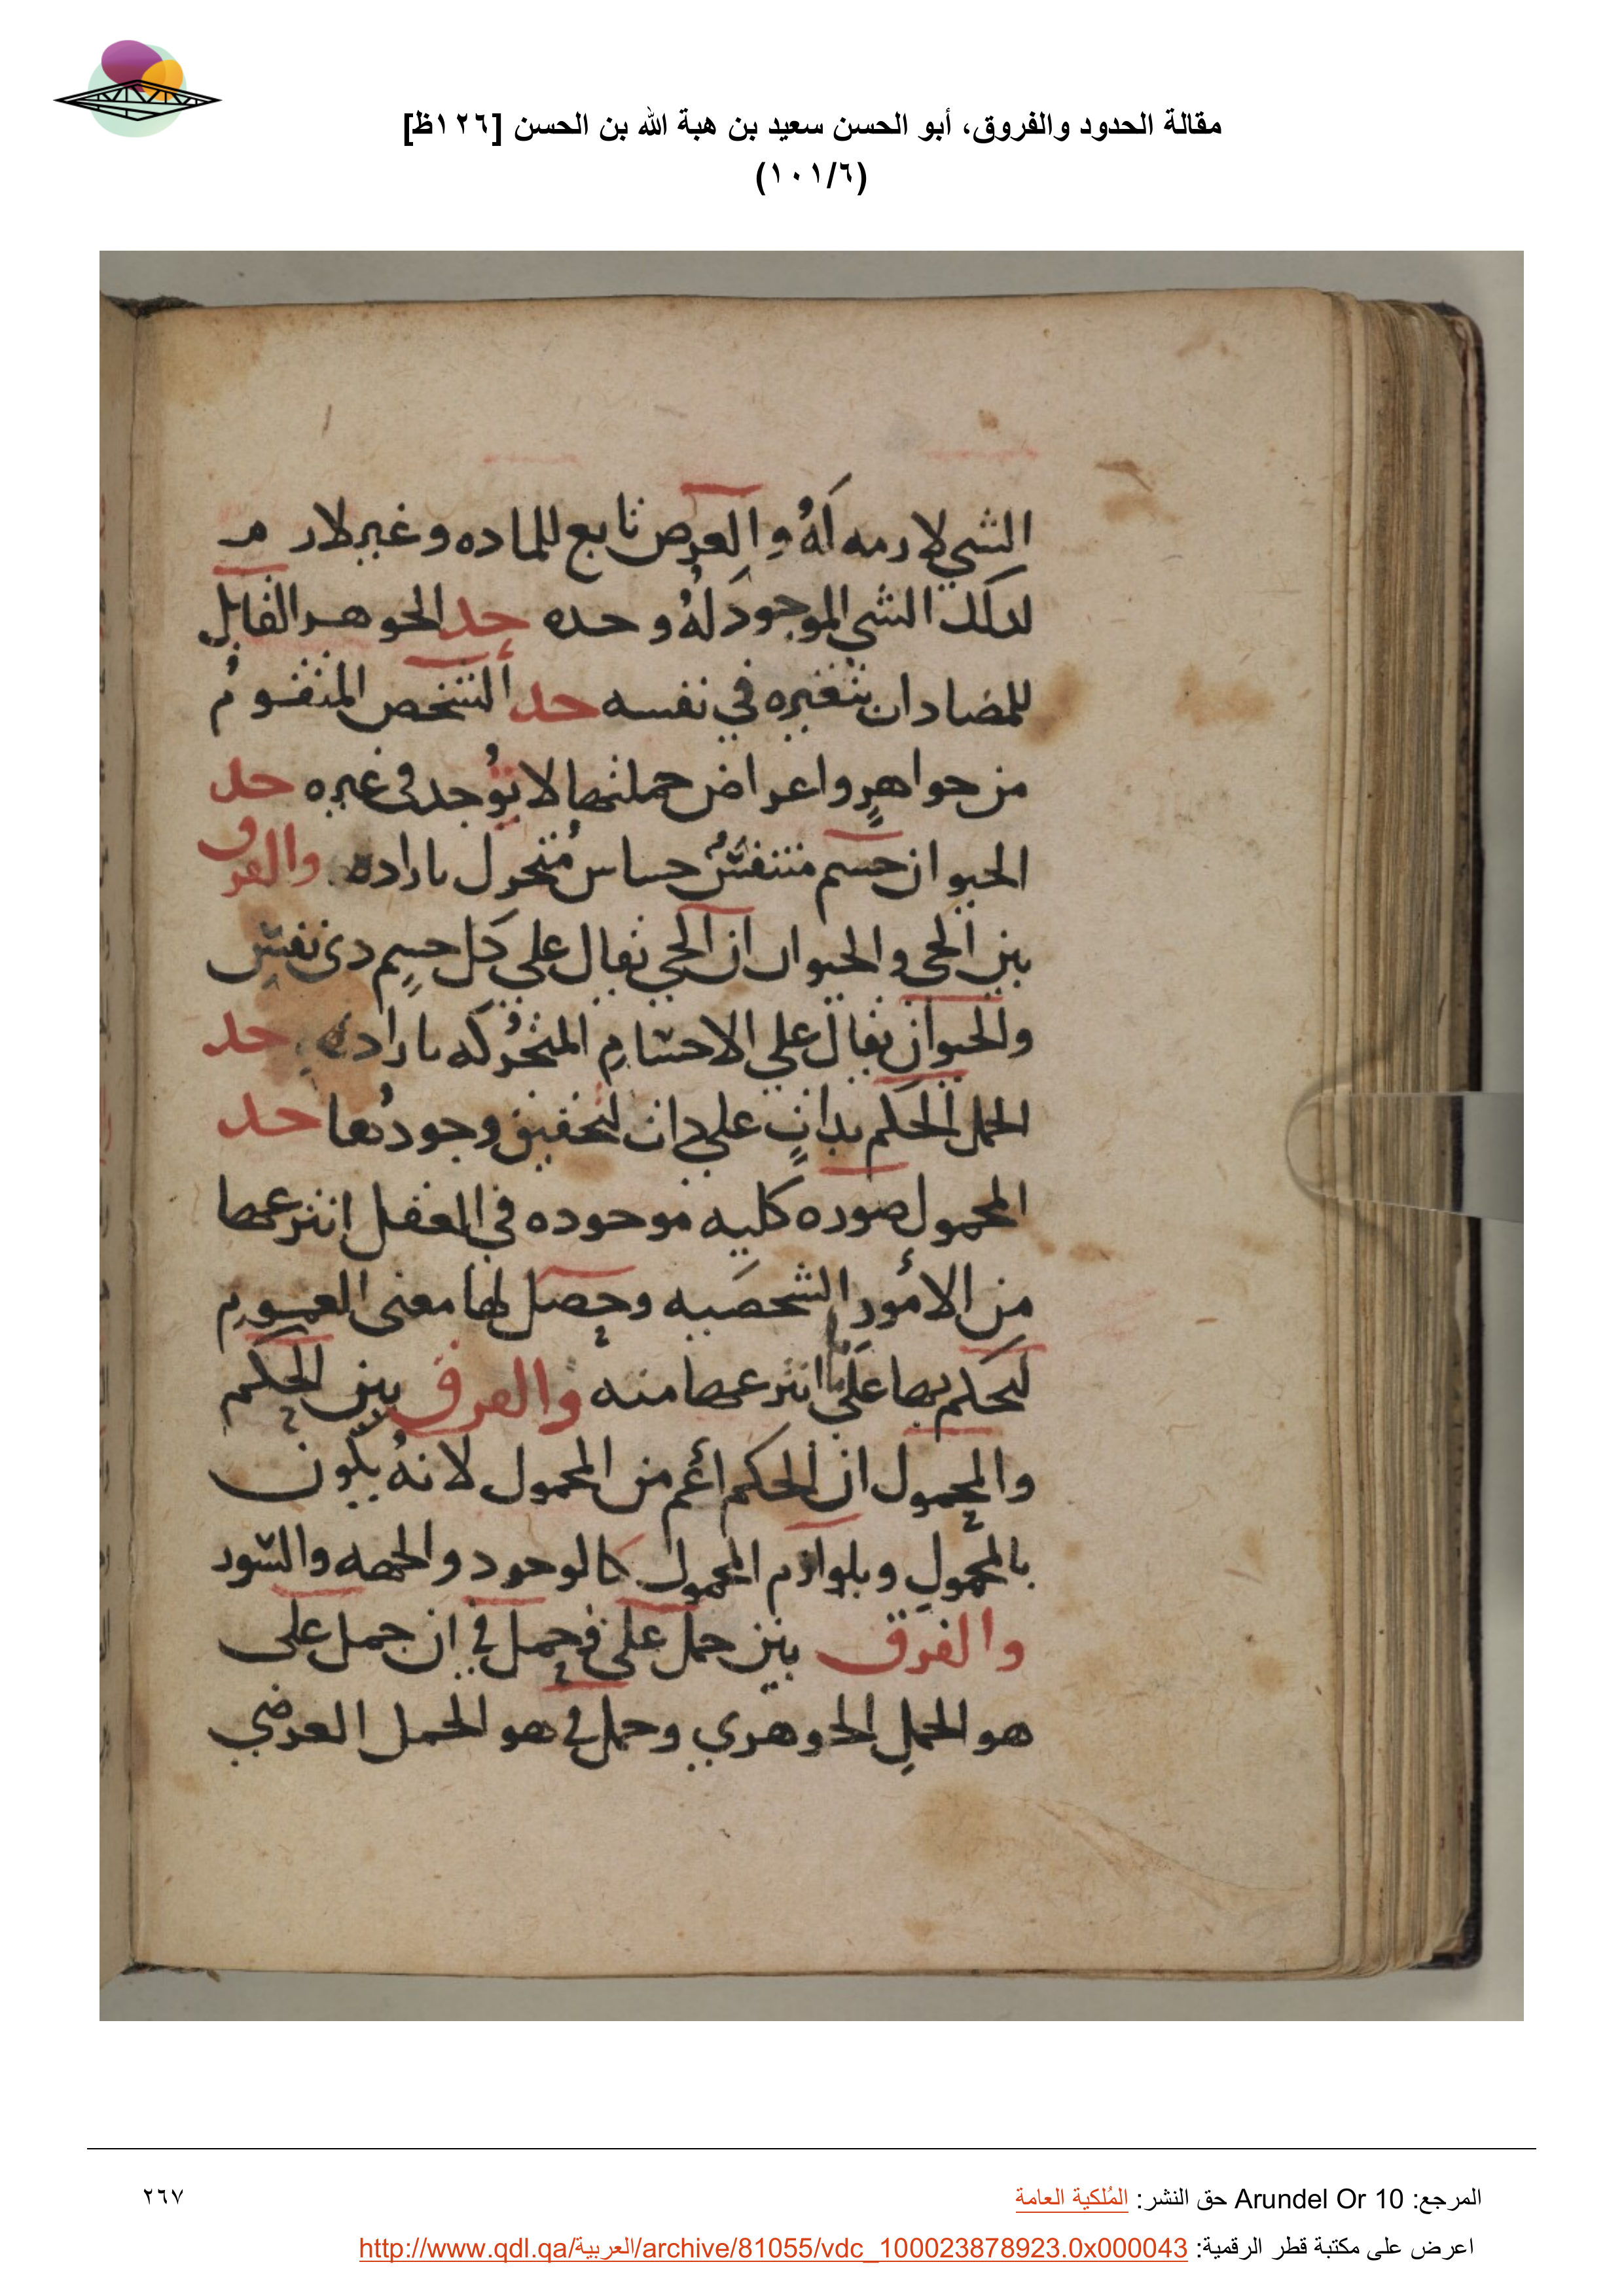 مقالة الحدود والفروق، أبو الحسن سعيد بن هبة الله بن الحسن [١٢٦ظ]
(١٠١/٦)
الشي لازمه لهُ والعرض تابع للماده وغير لازم
لذلك الشي الموجود لهُ وحده حد الجوهر القابل
للمضادات بتغيره في نفسه حد الشخص المتقوم
من جواهرٍ واعراض جملتها لا توجد في غيره حد
الحيوان جسم متنفسٌ حساس مُتحرك باراده والفرق
بين الحي والحيوان ان الحي يقال على كل جسمٍ ذي نفسٍ
والحيوان يقال على الاجسام المتحركه باراده حد
الحمل الحكم بذاتٍ على ذات لتحقيق وجودها حد
المحمول صوره كليه موجوده في العقل انتزعها
من الأمور الشخصيه وحصل لها معنى العموم
ليحكم بها على ما انتزعها منه والفرق بين الحكم
والمحمول ان الحكم أعم من المحمول لانهُ يكون
بالمحمول وبلوازم المحمول كالوجود والجهه والسور
والفرق بين حمل على في حمل في ان حمل على
هو الحمل الجوهري وحمل في هو الحمل العرضي
المرجع: Arundel Or 10 حق النشر: المُلكية العامة
٢٦٧
اعرض على مكتبة قطر الرقمية: http://www.qdl.qa/العربية/archive/81055/vdc_100023878923.0x000043